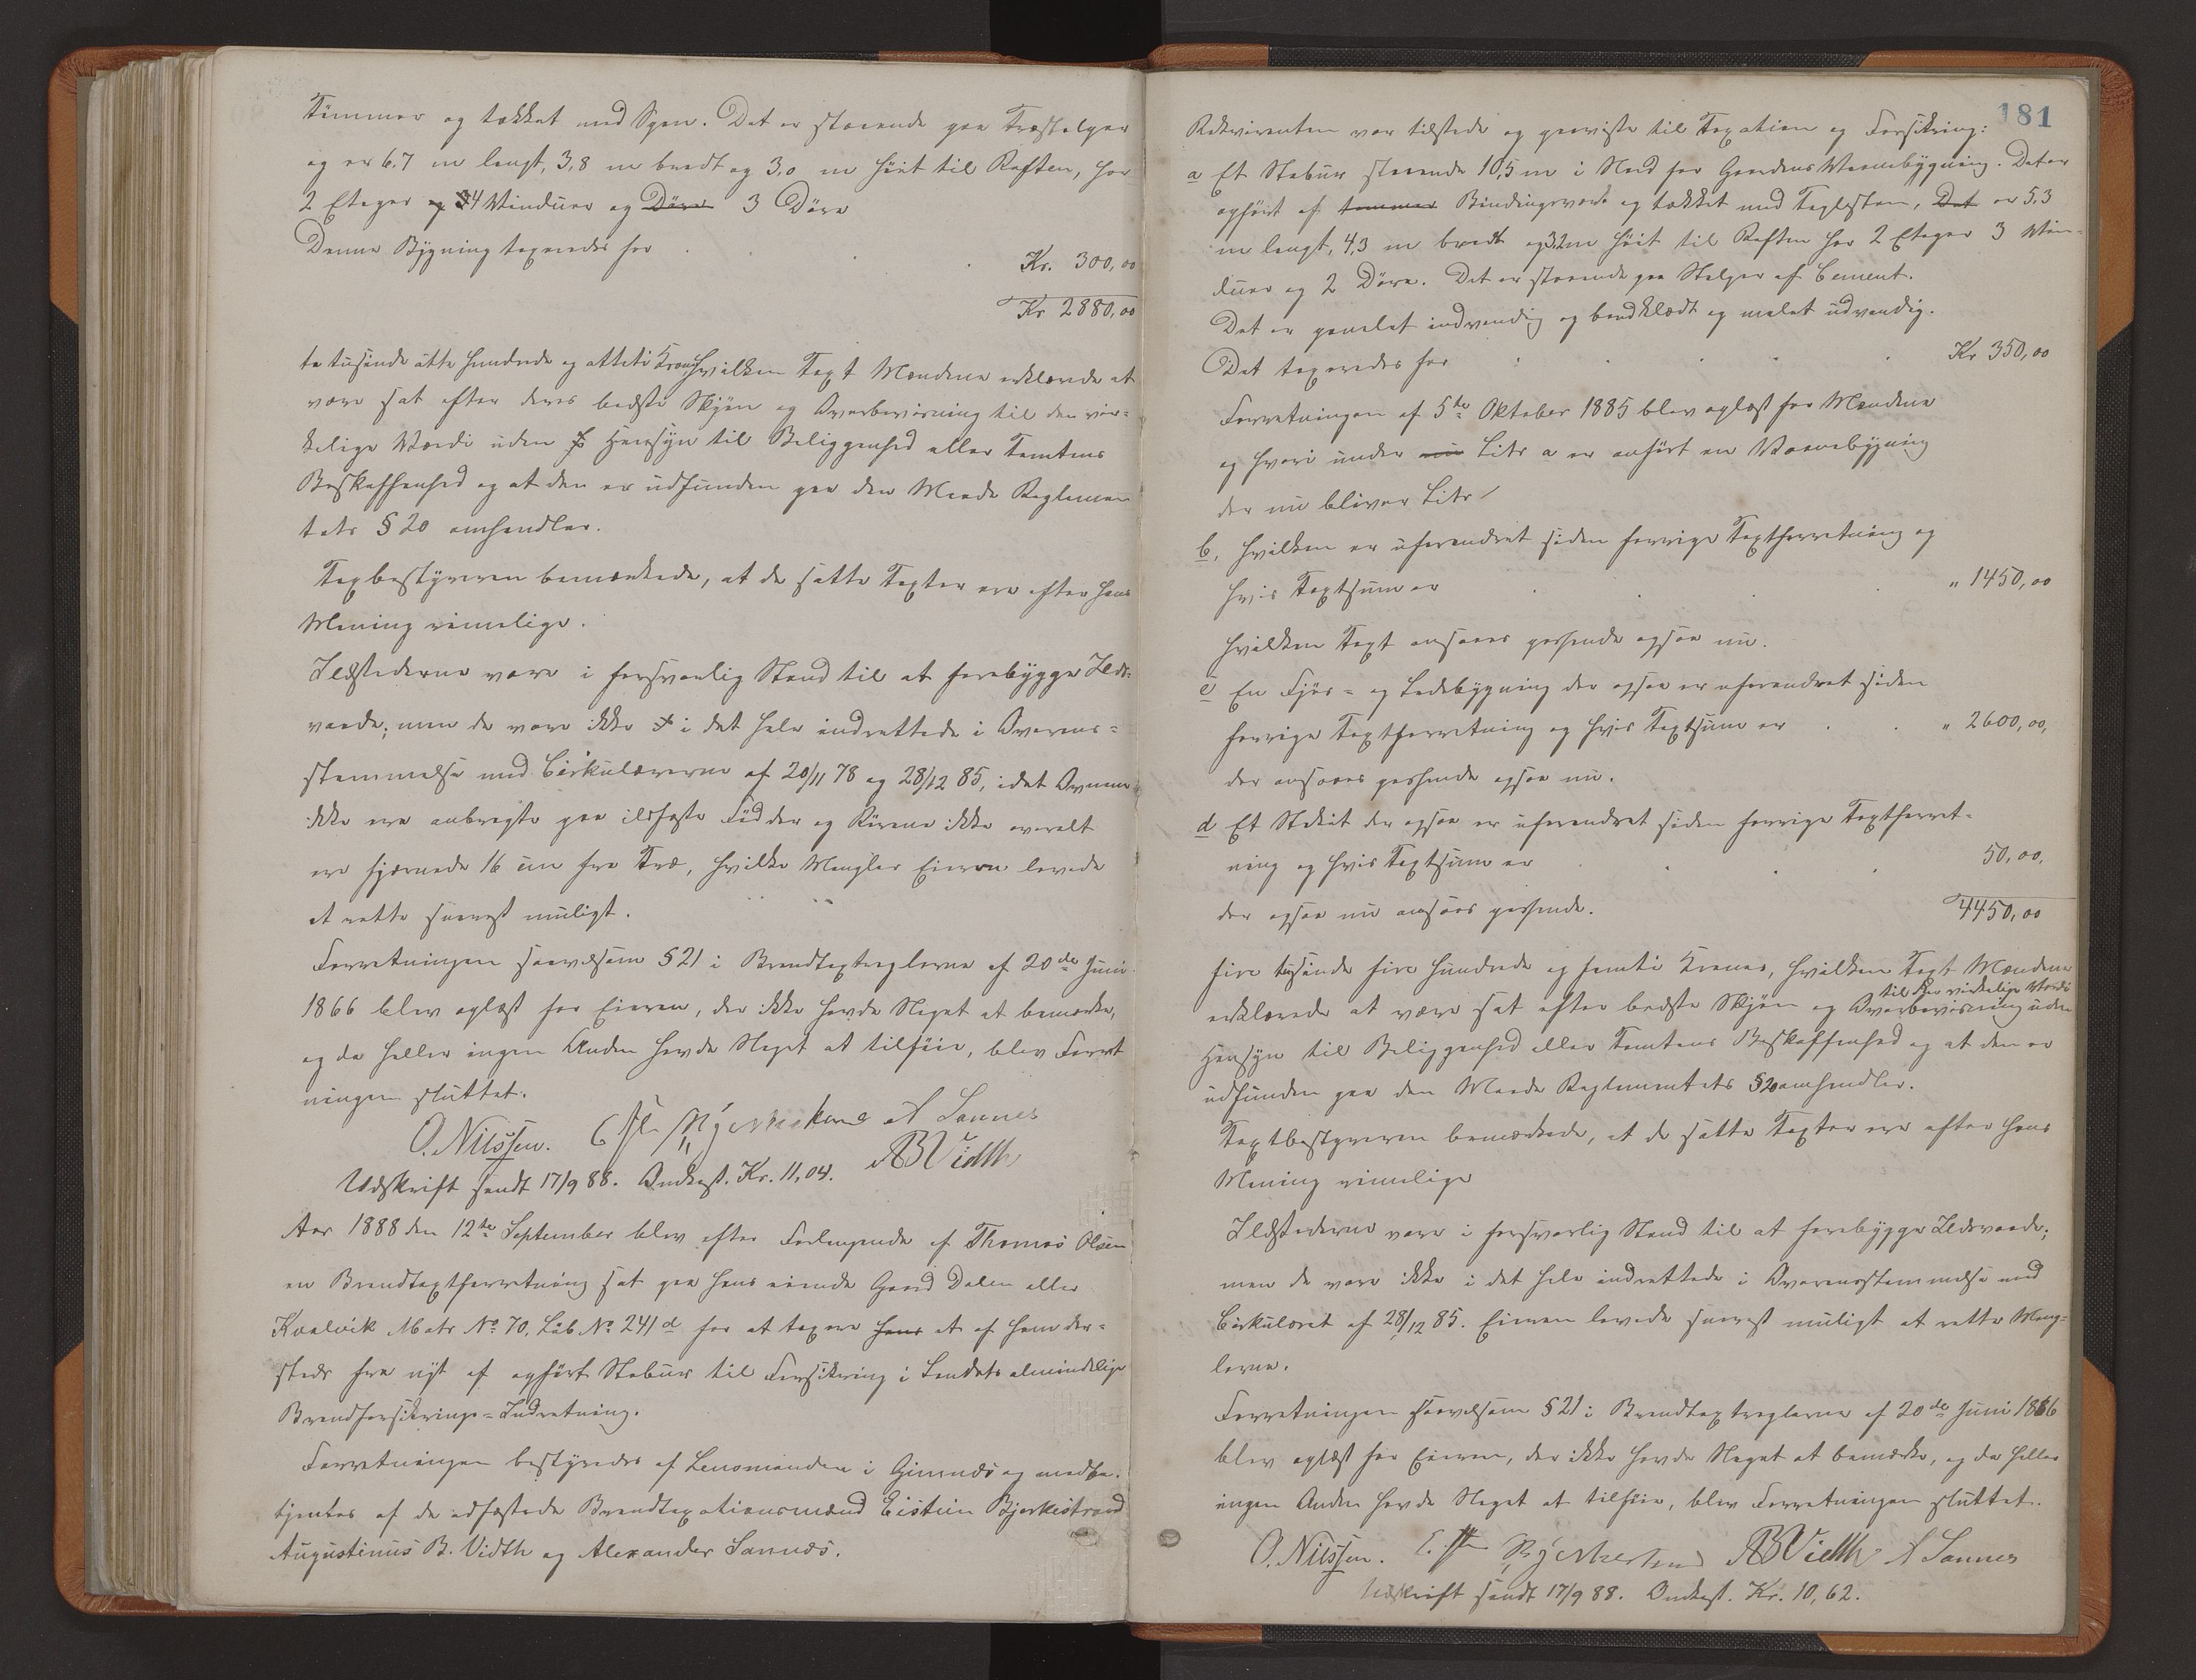 Tømmer og tækket med Spon. Det er staaende paa Træstolper
og er 6,7 m langt, 3,8 m bredt og 3,0 m høit til Raften, har
2 Etager og 4 Vinduer og Døre 3 Døre
Denne Bygning taxeredes for
Kr. 300,00
Kr 2880,00
to tusinde otte hundrede og otteti Kroner hvilken Taxt Mændene erklærede at
være sat efter deres bedste Skjøn og Overbevisning til den vir-
kelige Værdi uden Hensyn til Beliggenhed eller Tomtens
Beskaffenhed og at den er udfunden paa den Maade Reglemen
tets § 20 omhandler.
Taxbestyreren bemærkede, at de satte Taxter ere efter hans
Mening rimelige.
Ildstederne vare i forsvarlig Stand til at forebygge Ilds-
vaade; men de vare ikke i det hele indrettede i Overens-
stemmelse med Cirkulærerne af 20/11 78 og 28/12 85, idet Ovnene
ikke ere anbragte paa ildfaste Fødder og Rørene ikke overalt
ere fjernede 16 cm fra Træ, hvilke Mangler Eieren lovede
at rette snarest muligt.
Forretningen saavelsom § 21 i Brandtaxtreglerne af 20de Juni
1866 blev oplæst for Eieren, der ikke havde Noget at bemærke,
og da heller ingen Anden havde Noget at tilføie, blev Forret
ningen sluttet.
O. Nilssen. A Sannes
AB Vidth
Udskrift sendt 17/9 88. Omkost. Kr. 11,04.
Aar 1888 den 12te September blev efter Forlangende af Thomas Olsen
en Brandtaxtforretning sat paa hans eiende Gaard Dalen eller
Kvalvik Matr No. 70, Løb No 241 d for at taxere hans et af ham der-
steds fra nyt af opført Stabur til Forsikring i Landets almindelige
Brandforsikrings-Indretning.
Forretningen bestyredes af Lensmanden i Gimnæs og medbe-
tjentes af de edfæstede Brandtaxationsmænd Eistein Bjerkestrand
Augustinus B. Vidth og Alexander Sannæs.
181
Rekvirenten var tilstede og paaviste til Taxation og Forsikring:
a Et Stabur staaende 10,5 m i Nord for Gaardens Vaanebygning. Det er
opført af tømmer Bindingsverk og tækket med Taglsten, Det er 5,3
m langt, 4,3 m bredt og 3,2 m høit til Raften har 2 Etager 3 Vin-
duer og 2 Døre. Det er staaende paa Stolper af Cement.
Det er panelet indvendig og bordklædt og malet udvendig.
Det taxeredes for
Kr 350,00
Forretningen af 5te Oktober 1885 blev oplæst for Mændene
og hvori under Litr a er anført en Vaanebygning
der nu bliver Litr
b, hvilken er uforandret siden forrige Taxtforretning og
hvis Taxtsum er
" 1450,00
hvilken Taxt ansaaes passende ogsaa nu.
c En Fjøs- og Ladebygning der ogsaa er uforandret siden
forrige Taxtforretning og hvis Taxtsum er
" 2600,00,
der ansaaes passende ogsaa nu.
d Et der ogsaa er uforandret siden forrige Taxtforret-
ning og hvis Taxtsum er
50,00,
der ogsaa nu ansaaes passende.
4450,00
fire tusinde fire hundrede og femti Kroner, hvilken Taxt Mændene
til den virkelige Værdi
erklærede at være sat efter bedste Skjøn og Overbevisning uden
Hensyn til Beliggenhed eller Tomtens Beskaffenhed og at den er
udfunden paa den Maade Reglementets § 20 omhandler.
Taxtbestyreren bemærkede, at de satte Taxter ere efter hans
Mening rimelige
Ildstederne vare i forsvarlig Stand til at forebygge Ildsvaade;
men de vare ikke i det hele indrettede i Overensstemmelse med
Cirkulæret af 28/12 85. Eieren lovede snarest muligt at rette Mang-
lerne.
Forretningen saavelsom § 21 i Brandtaxtreglerne af 20de Juni 1866
blev oplæst for Eieren, der ikke havde Noget at bemærke, og da heller
ingen Anden havde Noget at tilføie, blev Forretningen sluttet.
O. Nilssen. AB Vidth A Sannes
Udskrift sendt 17/9 88. Omkost. Kr. 10,62.